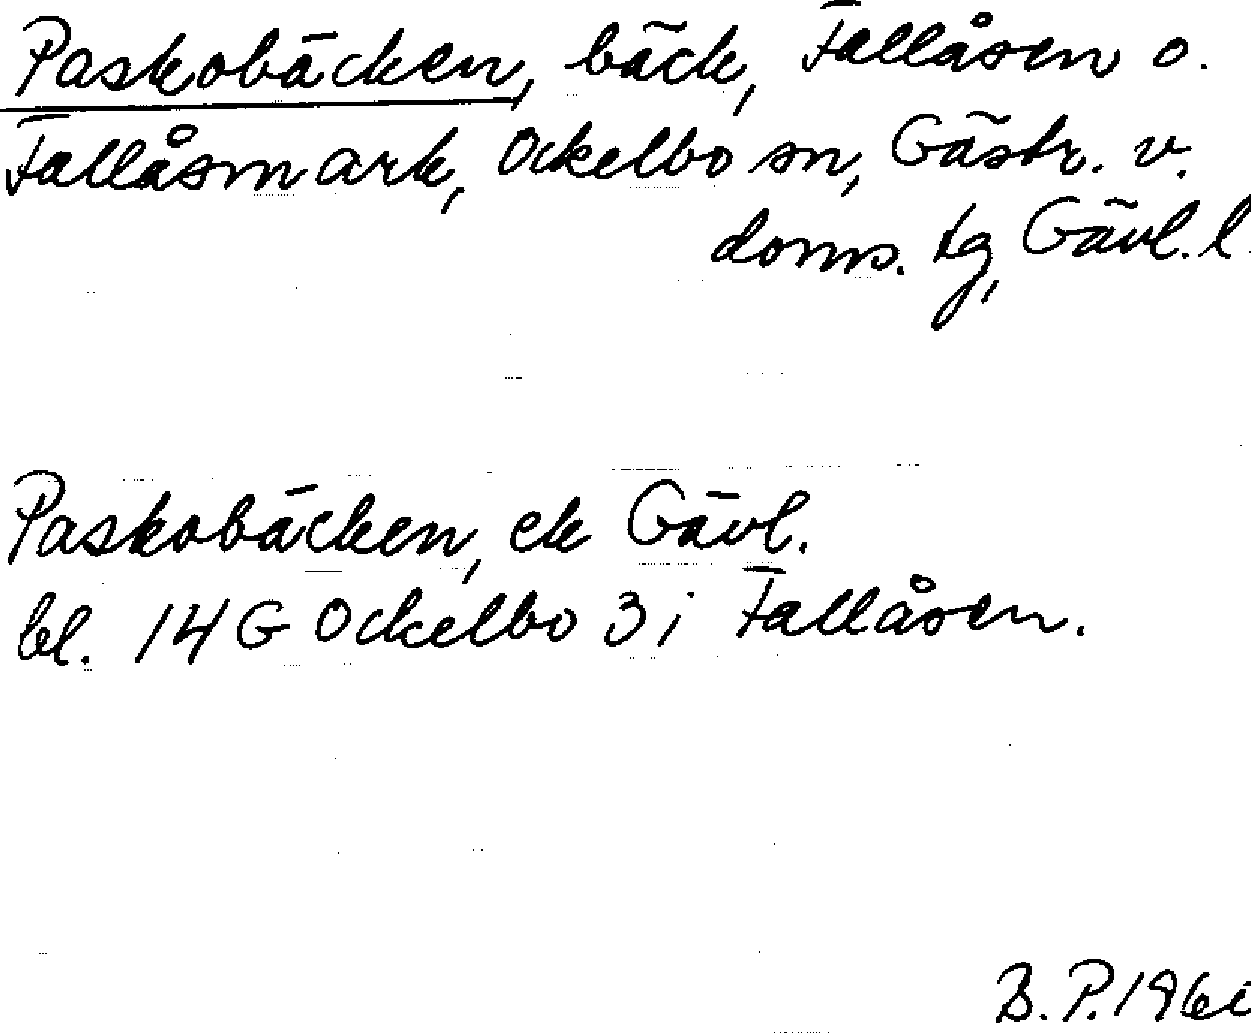 Paskobäcken, bäck, Fallåsen o.
Fallåsmark, Ockelbo sn, Gästr. v.
doms. tg, Gävl. l.
Paskobäcken, ek Gävl.
bl. 14 G Ockelbo 3 i Fallåsen.
B. P. 196